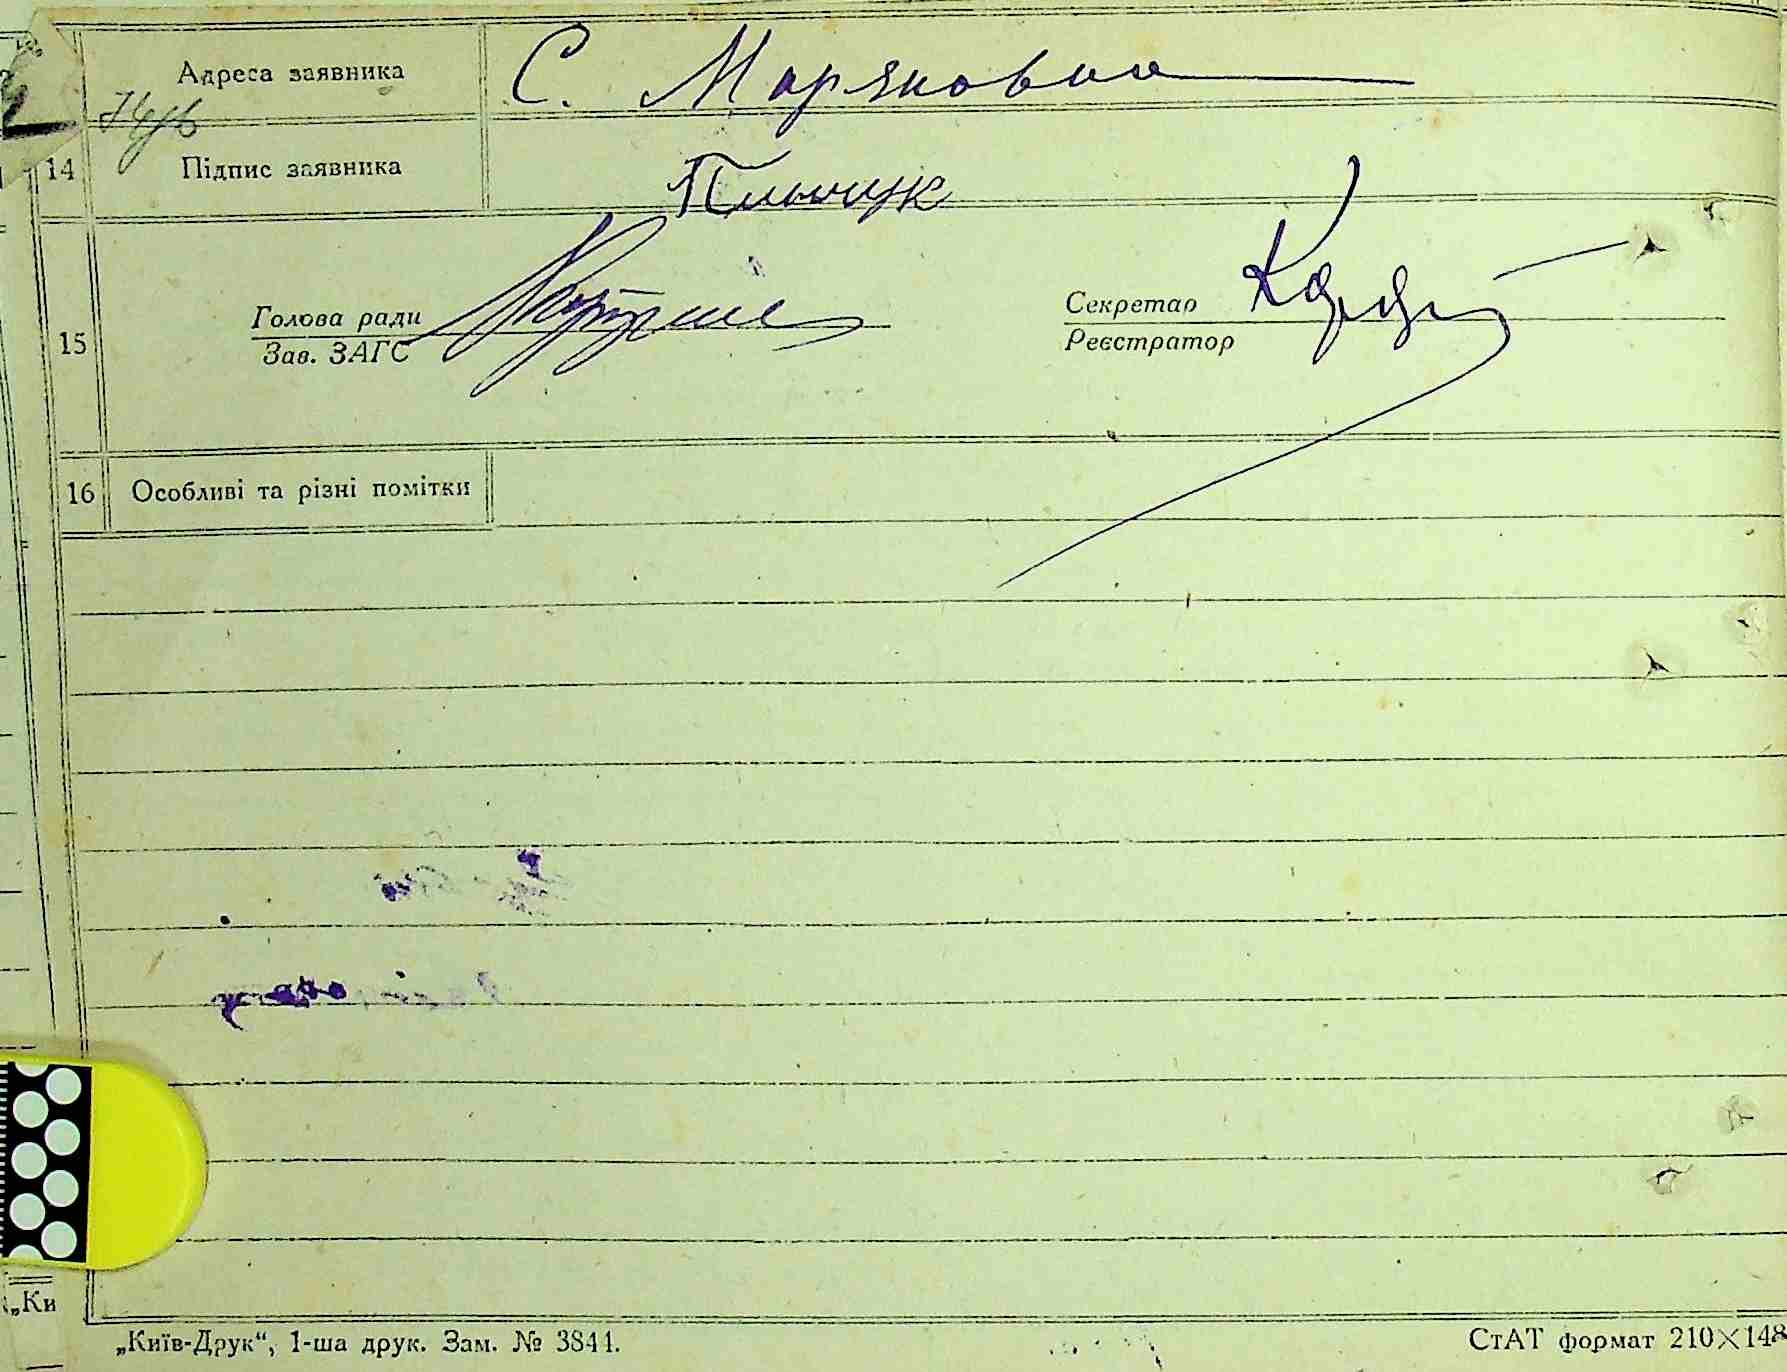 Адреса заявника С. Моряновка
14 Підпис заявника
15 Голова ради Секретар
Зав. ЗАГС Реєстратор
16 Особливі та різні помітки
„Ки
„Київ-Друк“, 1-ша друк. Зам. № 3844.
СтАТ формат 210×148